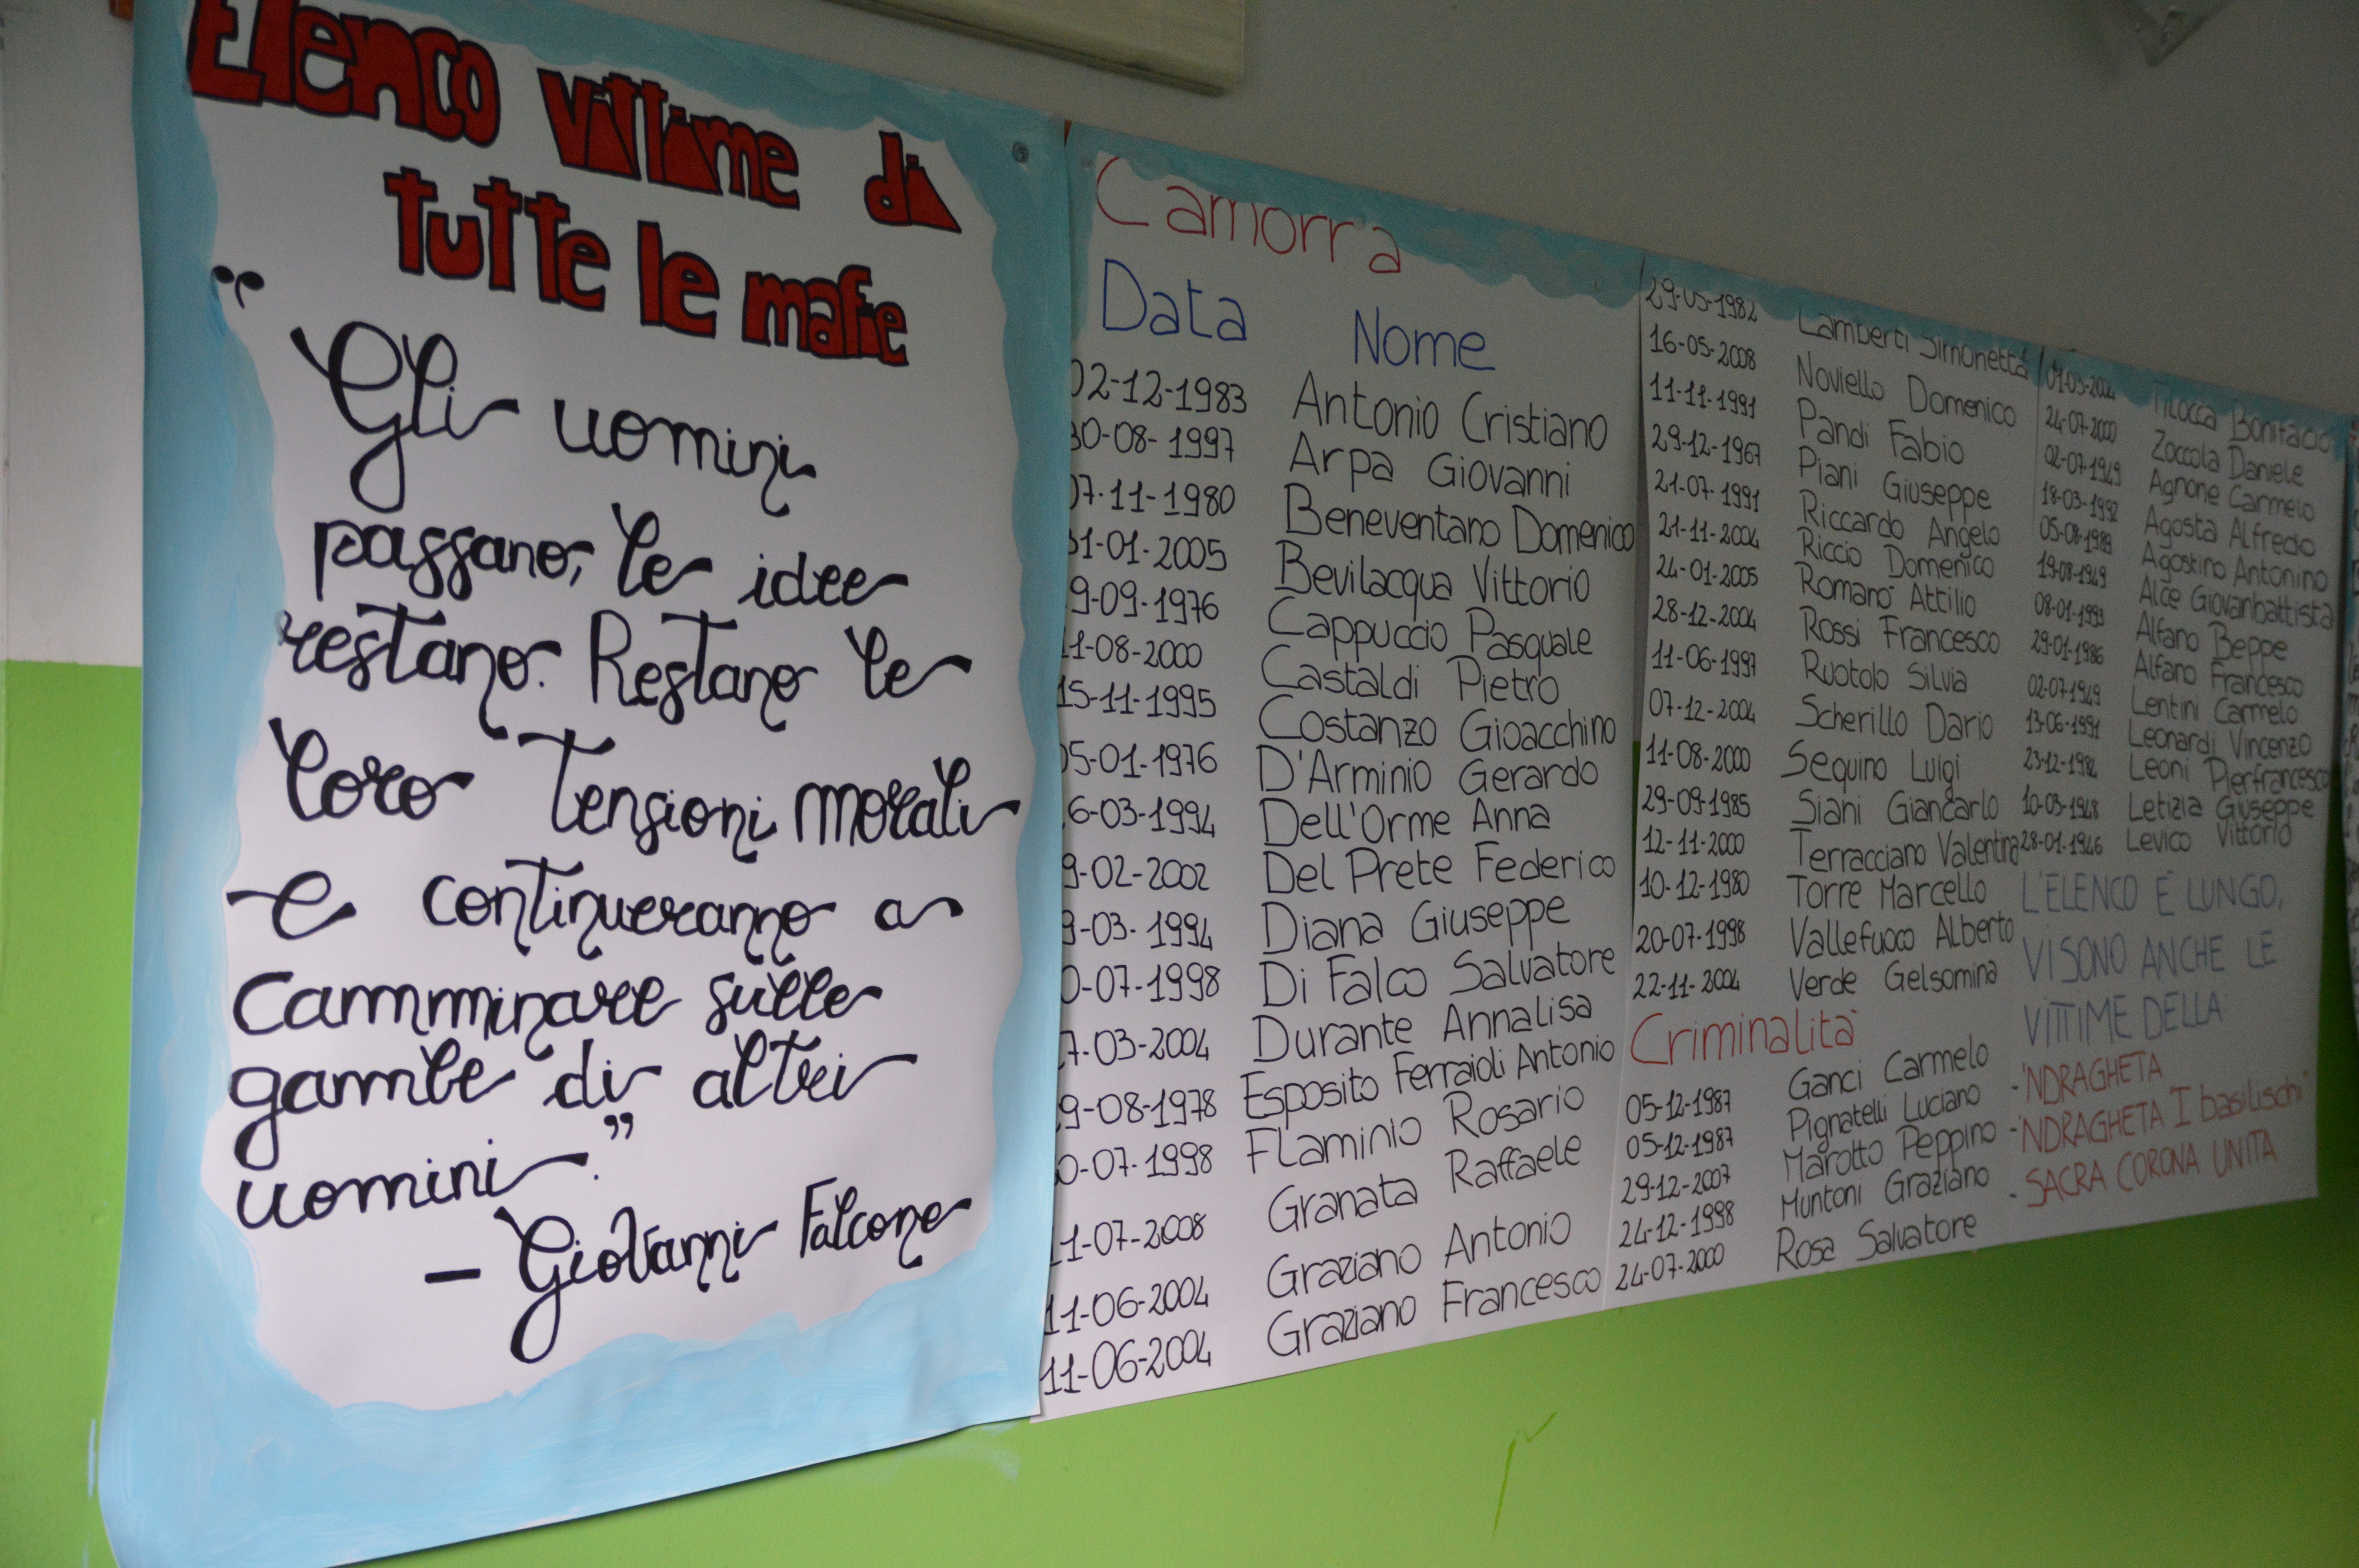 Elenco vittime di
tutte le mafie
"Gli uomini
passano, le idee
restano. Restano le
loro tensioni morali
e continueranno a
camminare sulle
gambe di altri
uomini."
- Giovanni Falcone
Camorra
Data Nome
02-12-1983 Antonio Cristiano
30-08-1997 Arpa Giovanni
07-11-1980 Beneventano Domenico
31-01-2005 Bevilacqua Vittorio
9-09-1976 Cappuccio Pasquale
11-08-2000 Castaldi Pietro
15-11-1995 Costanzo Gioacchino
05-01-1976 D'Arminio Gerardo
6-03-1994 Dell'Orme Anna
9-02-2002 Del Prete Federico
9-03-1994 Diana Giuseppe
0-07-1998 Di Falco Salvatore
7-03-2004 Durante Annalisa
9-08-1978 Esposito Ferraioli Antonio
0-07-1998 Flaminio Rosario
11-07-2008 Granata Raffaele
11-06-2004 Graziano Antonio
11-06-2004 Graziano Francesco
29-05-1982 Lamberti Simonetta
16-05-2008 Noviello Domenico
11-11-1991 Pandi Fabio
29-12-1967 Piani Giuseppe
21-07-1991 Riccardo Angelo
21-11-2004 Riccio Domenico
24-01-2005 Romanò Attilio
28-12-2004 Rossi Francesco
11-06-1997 Ruotolo Silvia
07-12-2004 Scherillo Dario
11-08-2000 Sequino Luigi
29-09-1985 Siani Giancarlo
12-11-2000 Terracciano Valentina
10-12-1980 Torre Marcello
20-07-1998 Vallefuoco Alberto
22-11-2004 Verde Gelsomina
Criminalità
05-12-1987 Ganci Carmelo
05-12-1987 Pignatelli Luciano
29-12-2007 Marotto Peppino
24-12-1998 Muntoni Graziano
24-07-2000 Rosa Salvatore
Tilocca Bonifacio
24-07-2000 Zoccola Daniele
02-07-1949 Agnone Carmelo
18-03-1992 Agosta Alfredo
05-08-1989 Agostino Antonino
19-08-1949 Alce Giovanbattista
08-01-1993 Alfano Beppe
29-01-1986 Alfano Francesco
02-07-1949 Lentini Carmelo
13-06-1991 Leonardi Vincenzo
23-12-1984 Leoni Pierfrancesco
10-03-1948 Letizia Giuseppe
28-01-1946 Levico Vittorio
L'ELENCO È LUNGO,
VI SONO ANCHE LE
VITTIME DELLA:
-'NDRAGHETA
-'NDRAGHETA "I basilischi"
- SACRA CORONA UNITA